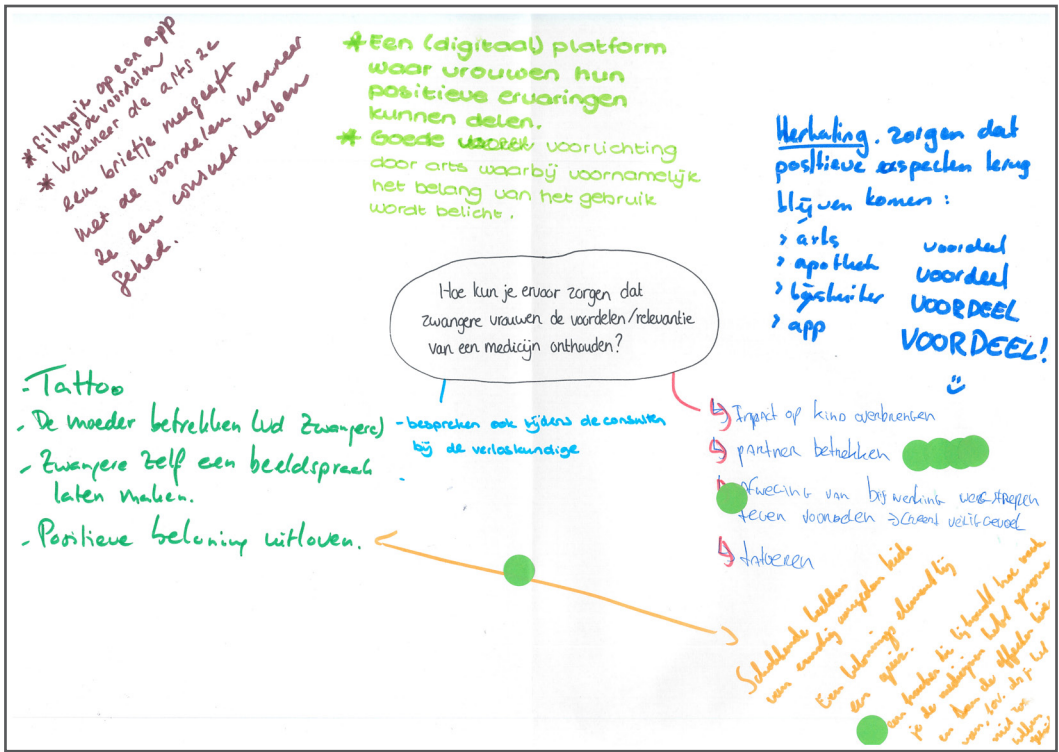 * filmpje op een app
met de voordelen
* wanneer de arts ze
een briefje meegeeft
met de voordelen wanneer
ze een consult hebben
gehad.
* Een (digitaal) platform
waar vrouwen hun
positieve ervaringen
kunnen delen.
* Goede voorlichting
door arts waarbij voornamelijk
het belang van het gebruik
wordt belicht.
Herhaling. zorgen dat
positieve aspecten terug
blijven komen:
> arts
> apotheek
> bijsluiter
> app
voordeel
voordeel
VOORDEEL
VOORDEEL!
Hoe kun je ervoor zorgen dat
zwangere vrouwen de voordelen/relevantie
van een medicijn onthouden?
- Tattoo
- De moeder betrekken (vd zwangere)
- Zwangere zelf een beeldspraak
laten maken.
- Positieve beloning uitloven.
- bespreken ook tijdens de consulten
bij de verloskundige
Impact op kind overbrengen
partner betrekken
Afweging van bijwerking wegstrepen
tegen voordelen
tatoeëren
Schokkende beelden
van
Een belonings element bij
een
je de medicijnen hebt
en dan de effecten
van,